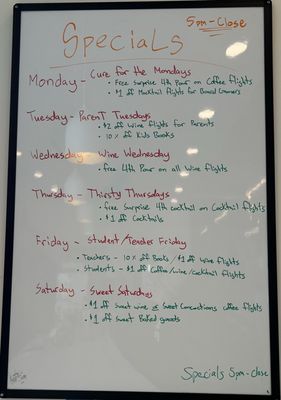 5pm-Close
Specials
Monday - Cure for the Mondays
• Free Surprise 4th Pour on Coffee flights
• $1 off Mocktail flights for Board Gamers
Tuesday - Parent Tuesdays
• $2 off Wine flights for Parents
• 10% off Kids Books
Wednesday - Wine Wednesday
• free 4th Pour on all wine flights
Thursday - Thirsty Thursdays
• free Surprise 4th cocktail on Cocktail flights
• $1 off Cocktails
Friday - Student/Teacher Friday
• Teachers - 10% off Books / $1 off Wine flights
• Students - $1 off Coffee/wine/cocktail flights
Saturday - Sweet Saturdays
• $1 off sweet wine or Sweet Concoctions coffee flights
• $1 off sweet Baked goods
Specials 5pm-Close